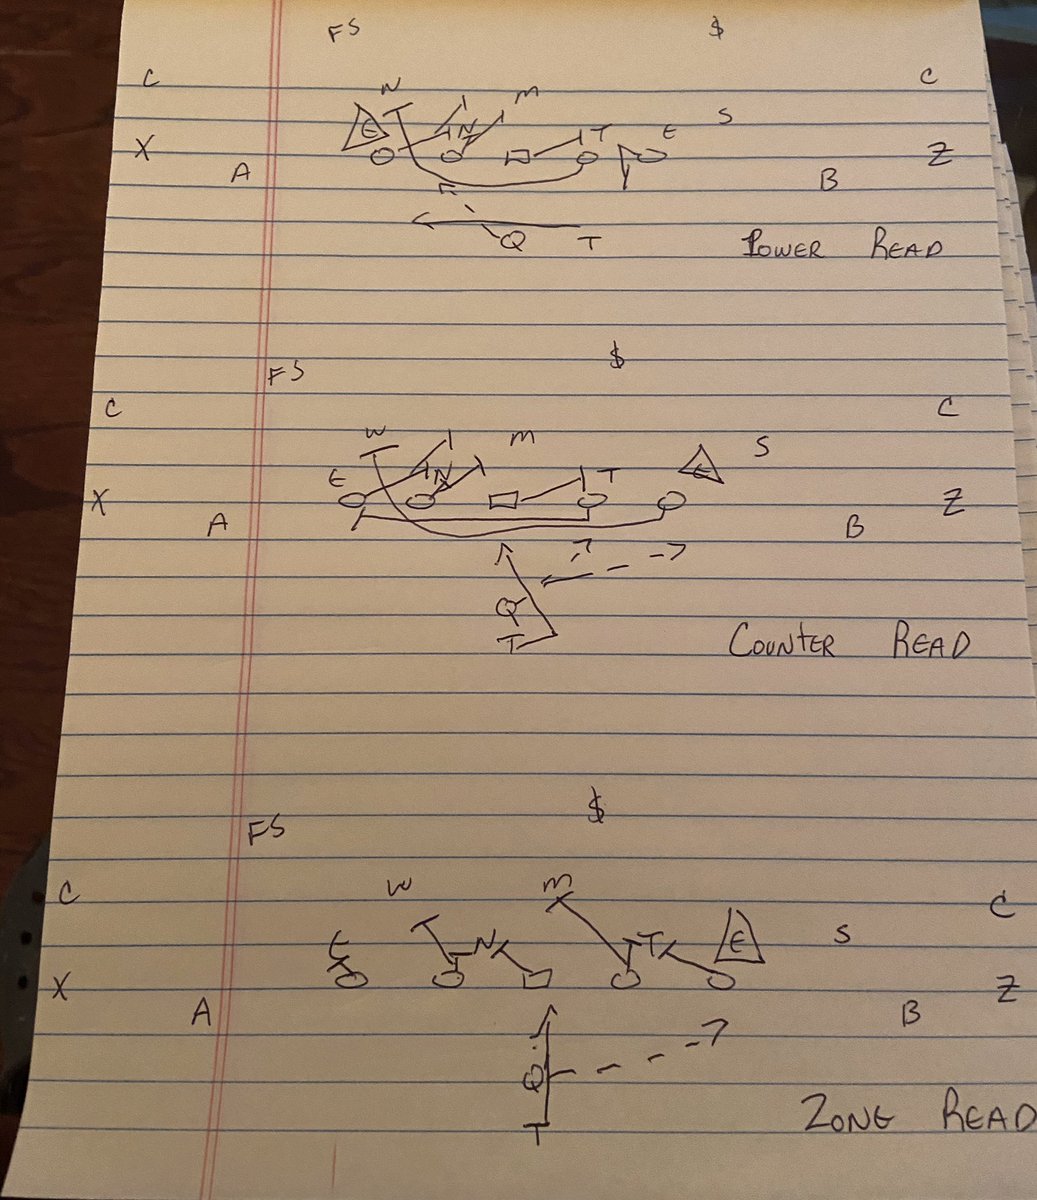 FS $
C N M C
E N T E S
X Z
A B
Q T POWER READ
$
FS
C C
W M S
E N T E
X Z
A B
Q
T COUNTER READ
$
FS
C W M C
E N T E S
X Z
A B
Q
T ZONE READ